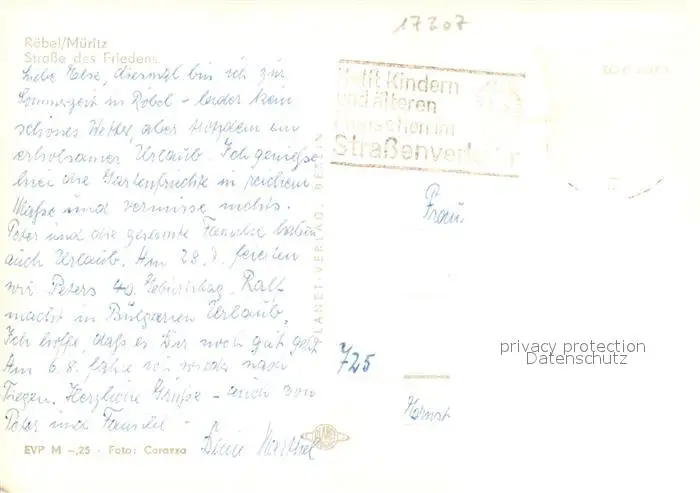 17207
Röbel/Müritz
Straße des Friedens
Liebe Else, diesmal bin ich zur
Sommerzeit in Röbel - leider kein
schönes Wetter, aber trotzdem ein
erholsamer Urlaub. Ich genieße
hier die Gartenfrüchte in reichem
Maße und vermisse nichts.
Peter und die gesamte Familie haben
auch Urlaub. Am 28.7. feierten
wir Peters 40. Geburtstag. Ralf
macht in Bulgarien Urlaub.
Ich hoffe, daß es Dir noch gut geht.
Am 6.8. fahre ich wieder nach
Herzliche Grüße - auch von
Peter und Familie -
Deine
EVP M -,25 · Foto: Carazza
PLANET-VERLAG, BERLIN
PLANET
Helft Kindern
und älteren
Menschen im
Straßenverkehr
Frau
725
privacy protection
Datenschutz